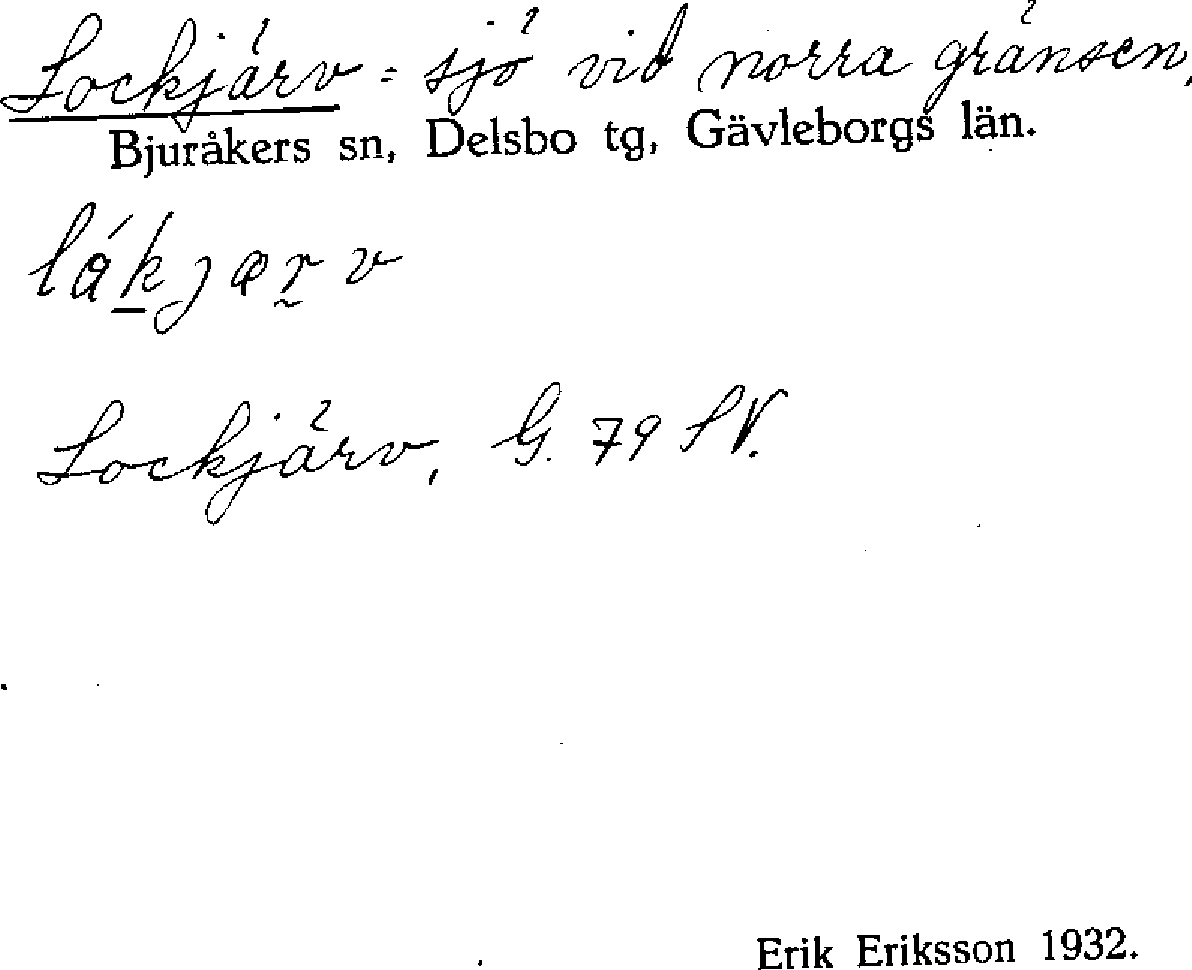 Lockjärv = sjö vid norra gränsen,
Bjuråkers sn, Delsbo tg, Gävleborgs län.
låkjærv
Lockjärv, G. 79 SV.
Erik Eriksson 1932.